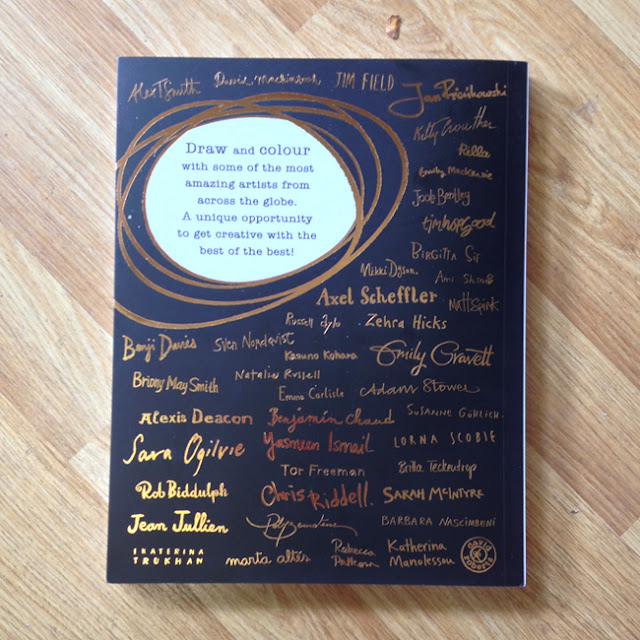 Alex T Smith David Mackintosh JIM FIELD
Jan Bajtlik
Draw and colour
with some of the most
amazing artists from
across the globe.
A unique opportunity
to get creative with the
best of the best!
Kitty Crowther
Rilla
Emily Mackenzie
Jade Bentley
timhopgood
BIRGITTA Sif
Mikki Dyson Ami Shin
Axel Scheffler
Russell Ayto Zehra Hicks
Benji Davies Sven Nordqvist
Kazuno Kohara Emily Gravett
Briony May Smith Natalie Russell
Emma Carlisle Adam Stower
Alexis Deacon Benjamin Chaud SUSANNE GÖHLICH
Sara Ogilvie Yasmeen Ismail LORNA SCOBIE
Tor Freeman Britta Teckentrup
Rob Biddulph Chris Riddell. SARAH McINTYRE
Jean Jullien BARBARA NASCIMBENI
EKATERINA
TRUKHAN marta altés Rebecca
Katherina
Manolessou
DAVID ROBERTS